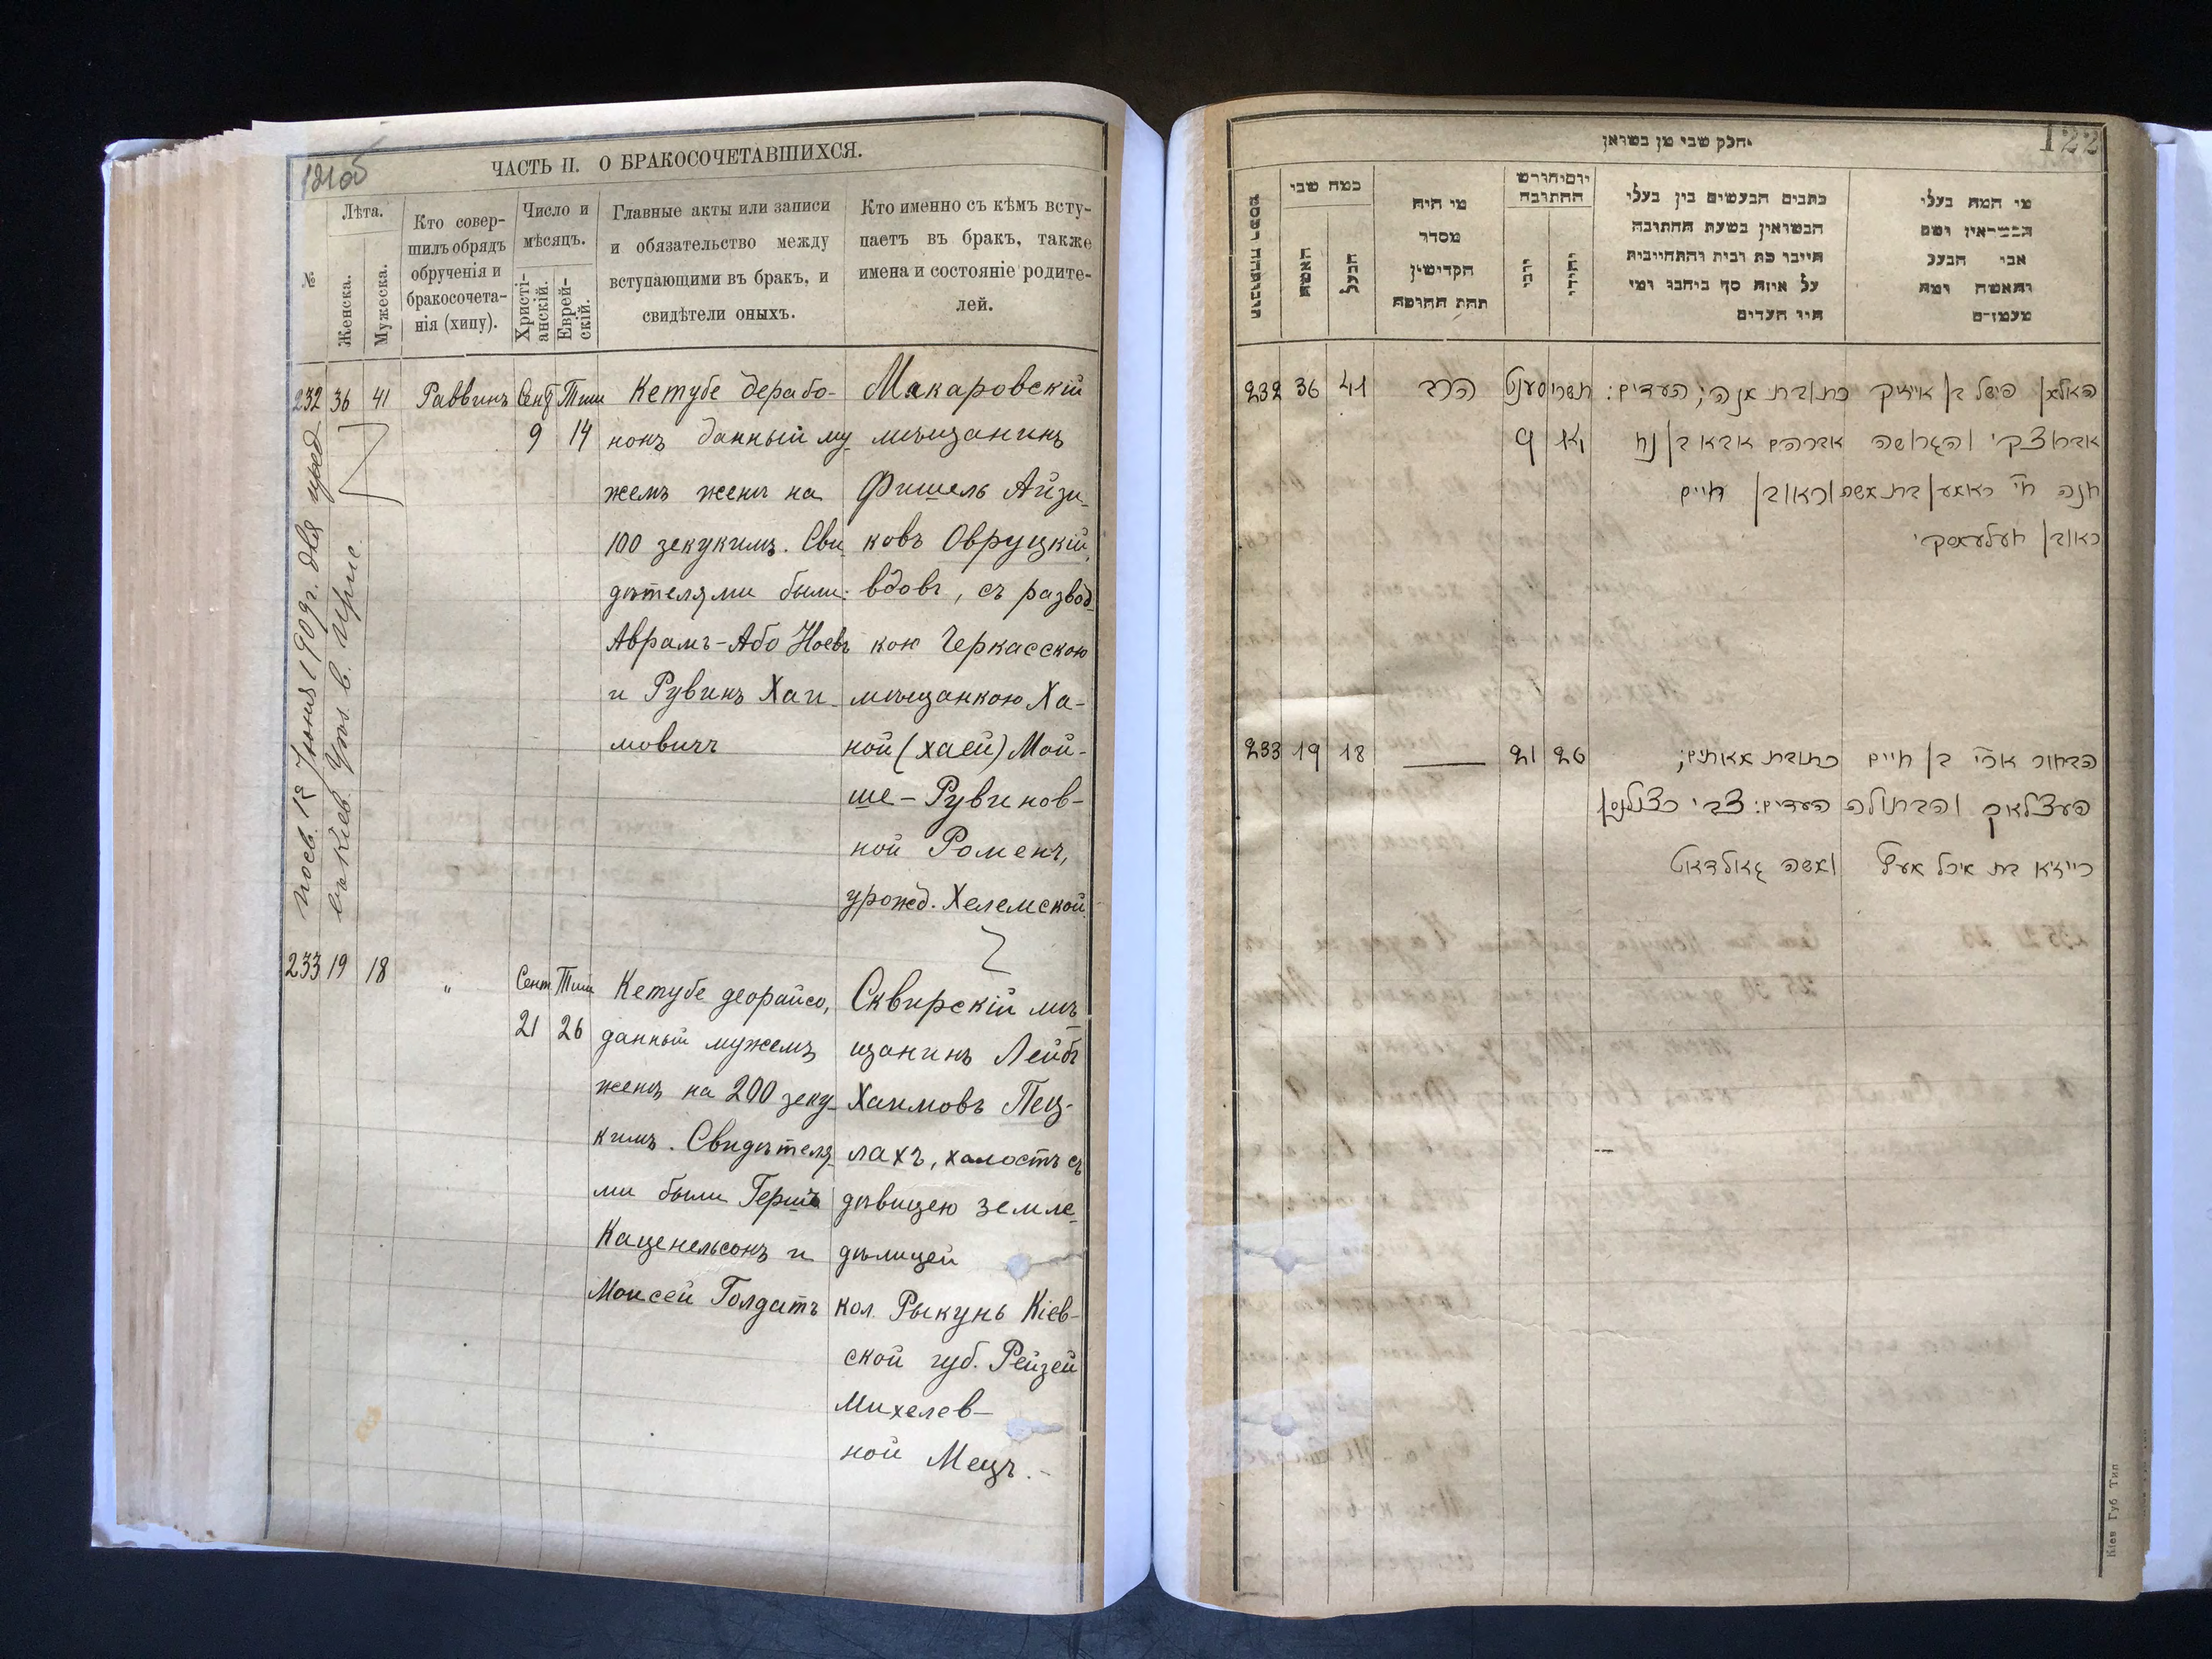 ЧАСТЬ II. О БРАКОСОЧЕТАВШИХСЯ.
№
Лѣта.
Женска.
Мужеска.
Кто совер-
шилъ обрядъ
обрученія и
бракосочета-
нія (хипу).
Число и
мѣсяцъ.
Христі-
анскій.
Еврей-
скій.
Главные акты или записи
и обязательство между
вступающими въ бракъ, и
свидѣтели оныхъ.
Кто именно съ кѣмъ всту-
паетъ въ бракъ, также
имена и состояніе родите-
лей.
232 36 41 Раввинъ Сент Тиш
9 14
Кетубе дерабо-
нонъ данный му-
жемъ женѣ на
100 зекукимъ. Сви-
дѣтелями были:
Аврамъ-Або Ноевъ
и Рувинъ Хаи-
мовичъ
Макаровскій
мѣщанинъ
Фишель Айзи-
ковъ Овруцкій,
вдовъ, съ развод-
кою Черкасскою
мѣщанкою Ха-
ной (Хаей) Мой-
ше-Рувинов-
ной Роменъ,
урожд. Хелемской
233 19 18 " Сент Тиш
21 26
Кетубе деорайсо,
данный мужемъ
женѣ на 200 зеку-
кимъ. Свидѣтеля-
ми были Гершъ
Каценельсонъ и
Моисей Голдатъ
Сквирскій мѣ-
щанинъ Лейбъ
Хаимовъ Пец-
лахъ, холостъ съ
дѣвицею земле-
дѣлицей
кол. Рыкунь Кіев-
ской губ. Рейзей
Михелев-
ной Мецъ.-
122
חלק שני מן נשואין
כמה שני
האשה
הבעל
מי היה
מסדר
הקדושין
תחת החופה
יום וחודש
החתונה
יוני
יהודי
כתבים הנעשים בין בעלי
הנשואין בשעת החתונה
היינו כת ובית והתחייבות
על איזה סך ניתנו ומי
היו העדים
מי המה בעלי
הנשואין ושם
אבי הבעל
והאשה ומה
מעמדם
232 36 41 הרב
9
האלמן פישל בן אייזיק
אברוצקי והגרושה
כתובת אנה; העדים:
אברהם אבא בן נח
וראובן חיים
233 19 18 21 26
הבחור ארי׳ בן חיים
פעצלאך והבתולה
רייזא בת מיכל מעץ
העדים: צבי כצנלנסון
ומשה גאולדאט
Кіев Губ Тип